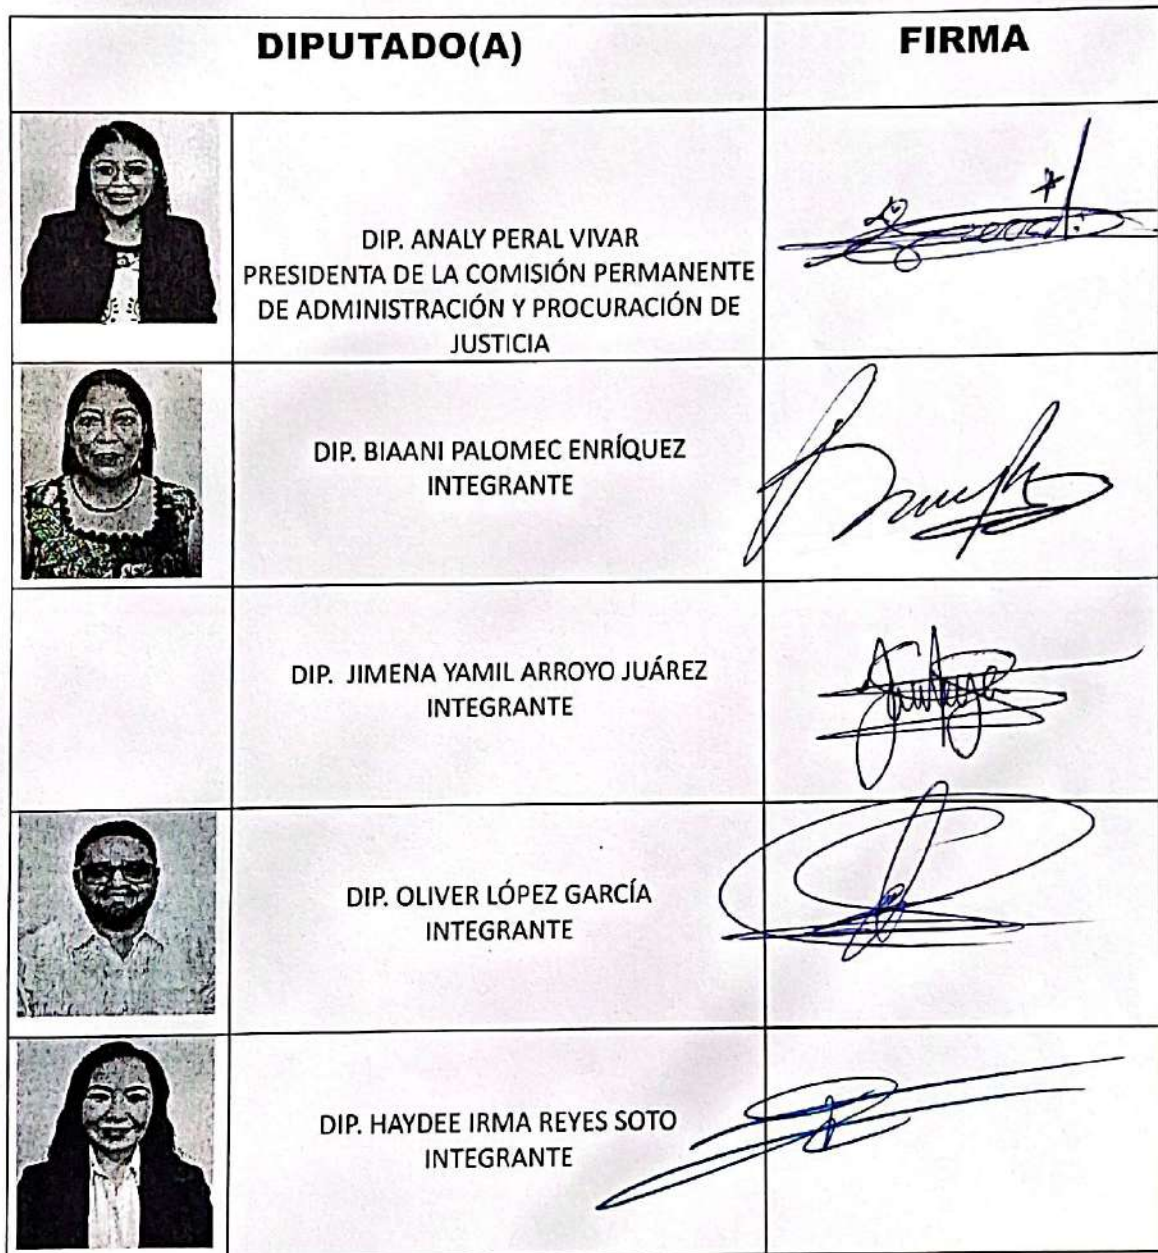 DIPUTADO(A)
FIRMA
DIP. ANALY PERAL VIVAR
PRESIDENTA DE LA COMISIÓN PERMANENTE
DE ADMINISTRACIÓN Y PROCURACIÓN DE
JUSTICIA
DIP. BIAANI PALOMEC ENRÍQUEZ
INTEGRANTE
DIP. JIMENA YAMIL ARROYO JUÁREZ
INTEGRANTE
DIP. OLIVER LÓPEZ GARCÍA
INTEGRANTE
DIP. HAYDEE IRMA REYES SOTO
INTEGRANTE